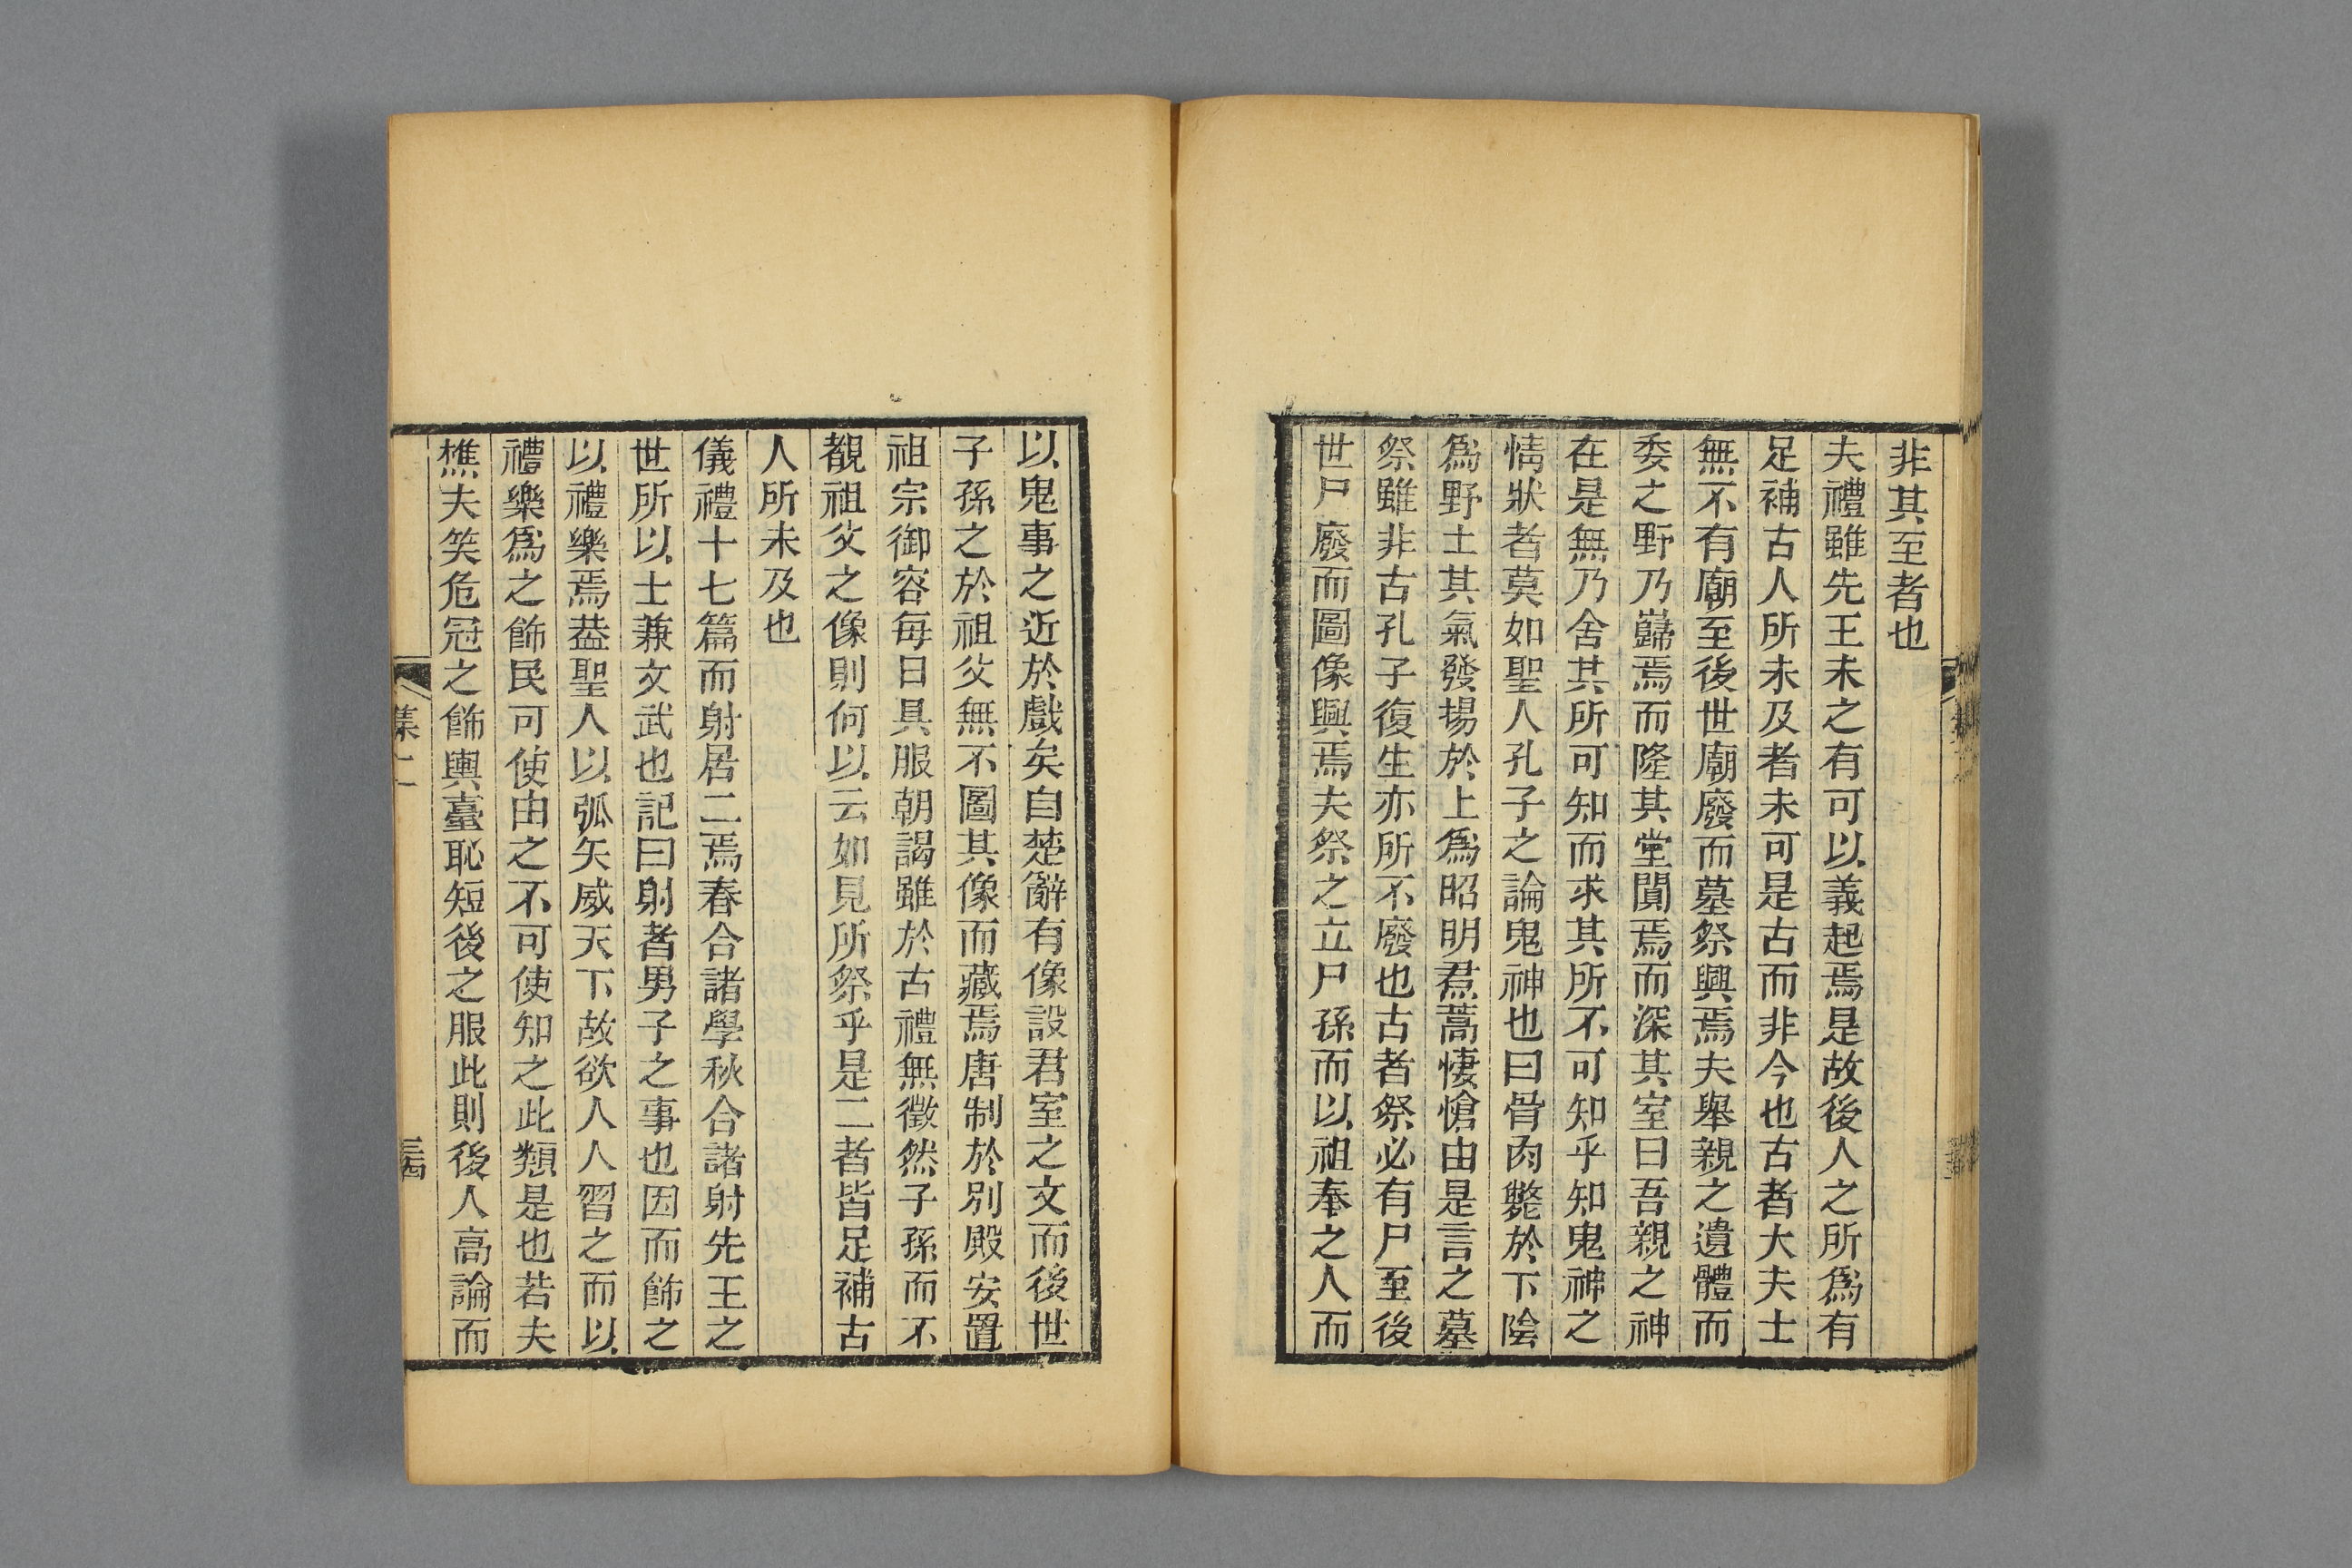 非其至者也
夫禮雖先王未之有可以義起焉是故後人之所爲有
足補古人所未及者未可是古而非今也古者大夫士
無不有廟至後世廟廢而墓祭興焉夫舉親之遺體而
委之野乃歸焉而隆其堂闃焉而深其室曰吾親之神
在是無乃舍其所可知而求其所不可知乎知鬼神之
情狀者莫如聖人孔子之論鬼神也曰骨肉斃於下陰
爲野土其氣發揚於上爲昭明焄蒿悽愴由是言之墓
祭雖非古孔子復生亦所不廢也古者祭必有尸至後
世尸廢而圖像興焉夫祭之立尸孫而以祖奉之人而
以鬼事之近於戲矣自楚辭有像設君室之文而後世
子孫之於祖父無不圖其像而藏焉唐制於別殿安置
祖宗御容每日具服朝謁雖於古禮無徵然子孫而不
覩祖父之像則何以云如見所祭乎是二者皆足補古
人所未及也
儀禮十七篇而射居二焉春合諸學秋合諸射先王之
世所以士兼文武也記曰射者男子之事也因而飾之
以禮樂焉葢聖人以弧矢威天下故欲人人習之而以
禮樂爲之飾民可使由之不可使知之此類是也若夫
樵夫笑危冠之飾輿臺恥短後之服此則後人高論而
集二
三四